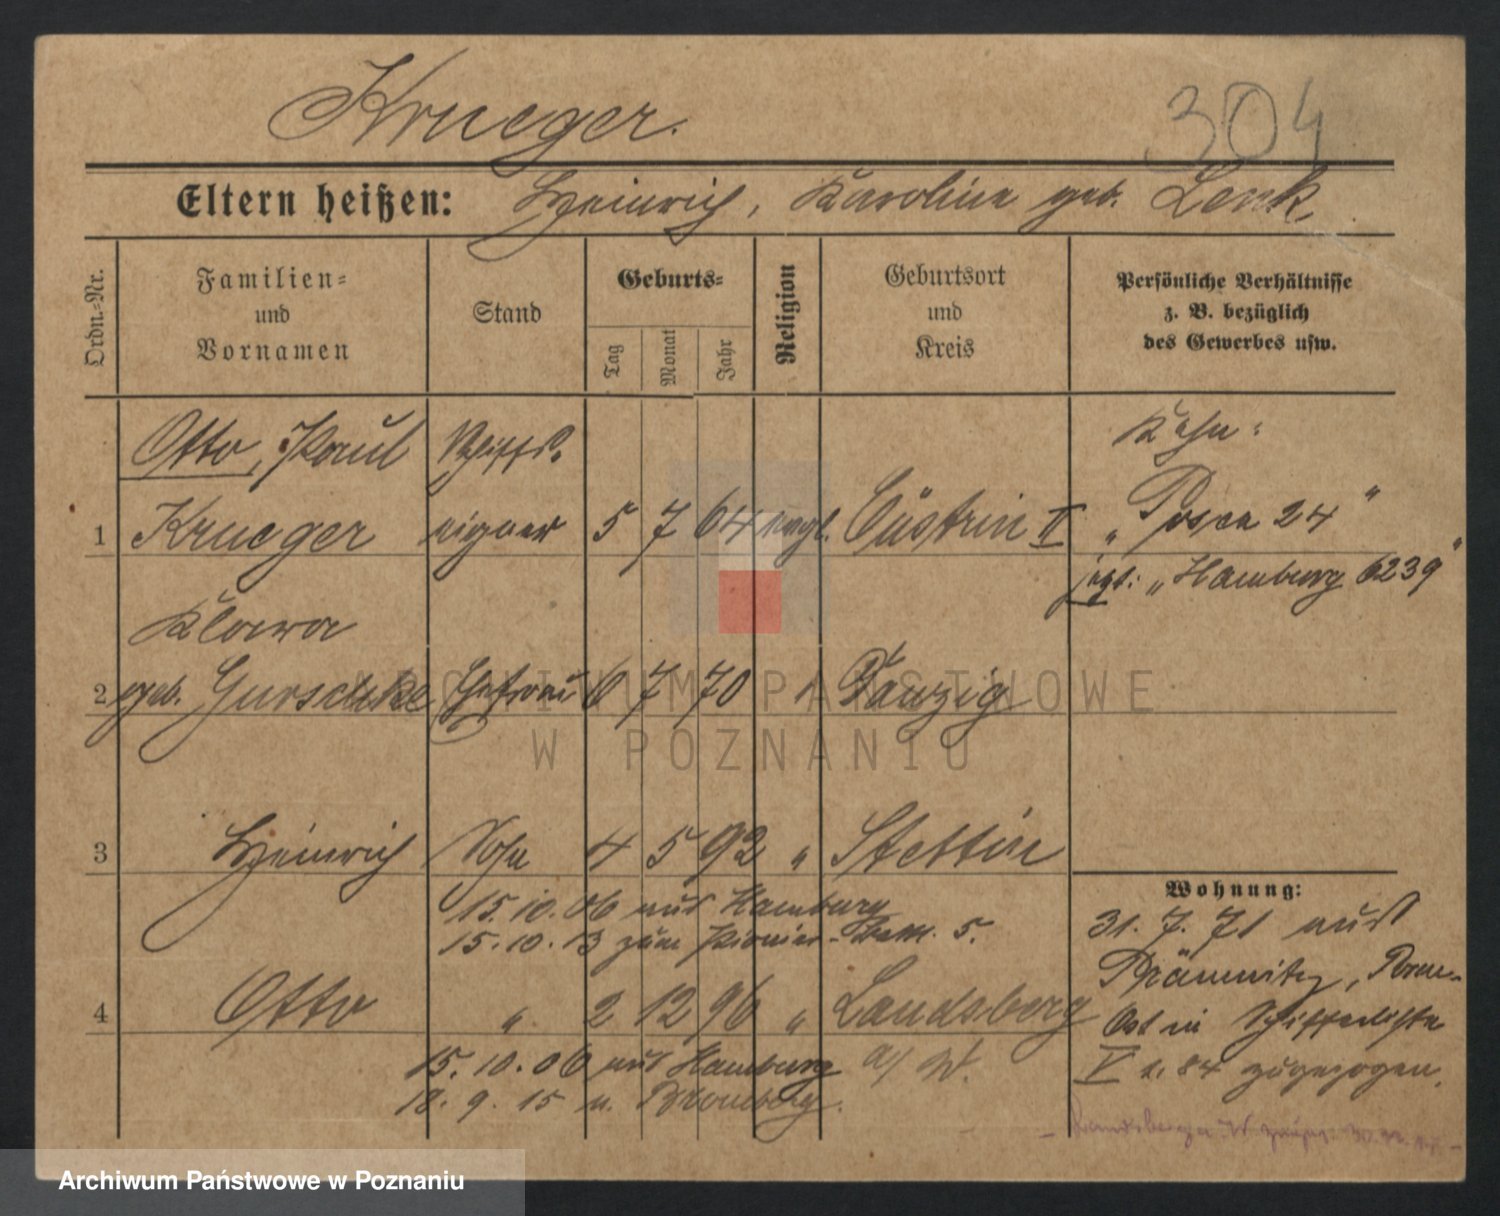 Krueger.
304
Eltern heißen: Heinrich, Karoline geb. Lenk.
Ordn.-Nr.
Familien-
und
Vornamen
Stand
Geburts-
Tag
Monat
Jahr
Religion
Geburtsort
und
Kreis
Persönliche Verhältnisse
z. B. bezüglich
des Gewerbes usw.
Otto, Paul Schiffs- Kahn:
1 Krueger eigner 5 7 64 evgl. Cüstrin II „Posen 24"
jetzt: „Hamburg 6239"
Klara
2 geb. Gurschke Ehefrau 6 7 70 " Danzig
ARCHIWUM PAŃSTWOWE
W POZNANIU
3 Heinrich Sohn 4 5 92 " Stettin
Wohnung:
15.10.06 aus Hamburg
15.10.13 zum Pionier-Batt. 5.
31. 7. 71 aus
4 Otto " 2 12 96 " Landsberg
a/ W.
15. 10. 06 aus Hamburg
18. 9. 15 n. Bromberg.
Ost in Schifferliste
V zugezogen.
Archiwum Państwowe w Poznaniu